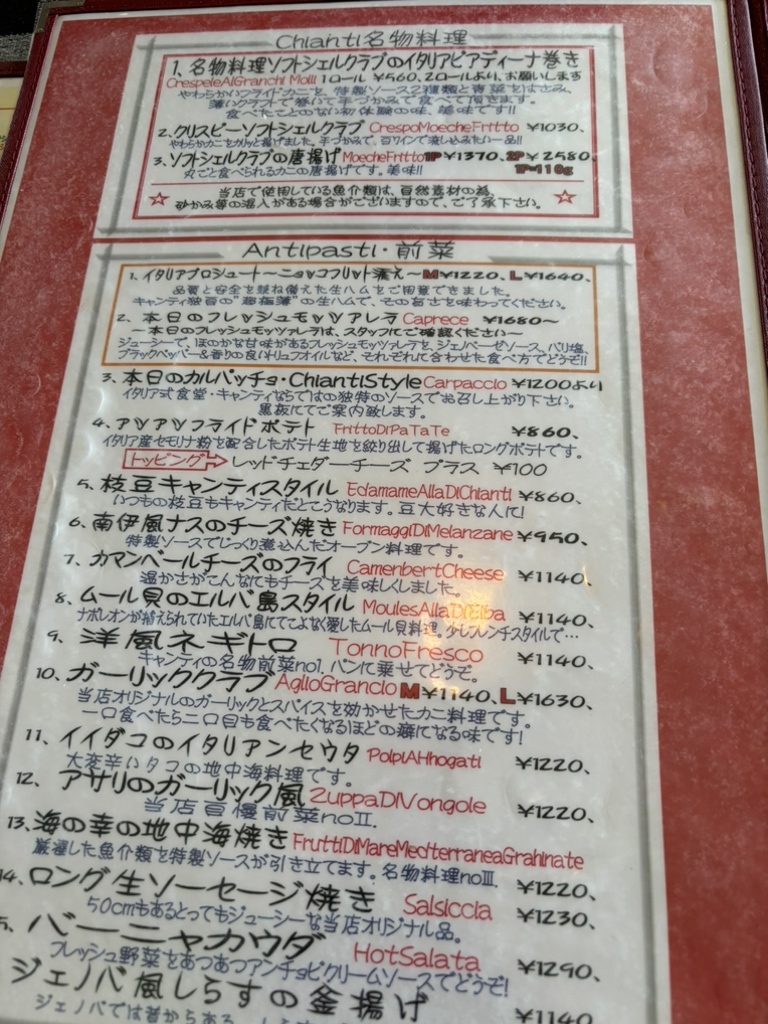 Chianti名物料理
1、名物料理ソフトシェルクラブのイタリアピアディーナ巻き
CrespeleAlGranchi Molli 1ロール ¥560、2ロールより、お願いします
やわらかいフライドカニを、特製ソース2種類と青菜をはさみ、
薄いクラフトで巻いて手づかみで食べて頂きます。
食べたことのない初体験の味、美味です!!
2、クリスピーソフトシェルクラブ CrespoMoecheFritto ¥1030、
やわらかカニをカリッと揚げました。手づかみで、白ワインで流し込みたい一品!!
3、ソフトシェルクラブの唐揚げ MoecheFritto 1P¥1370、2P¥2580、
丸ごと食べられるカニの唐揚げです。美味!! 1P=110g
☆ 当店で使用している魚介類は、自然素材の為、 ☆
砂かみ等の混入がある場合がございますので、ご了承下さい。
Antipasti・前菜
1、イタリアプロシュート〜ニョッコフリット添え〜M¥1220、L¥1640、
品質と安全を兼ね備えた生ハムをご用意できました。
キャンティ独自の“超極薄”の生ハムで、その旨さを味わってください。
2、本日のフレッシュモッツアレラ Caprece ¥1680〜
〜本日のフレッシュモッツァレラは、スタッフにご確認ください〜
ジューシーで、ほのかな甘味があるフレッシュモッツァレラを、ジェノベーゼソース、バリ塩、
ブラックペッパー&香りの良いトリュフオイルなど、それぞれに合わせた食べ方でどうぞ!!
3、本日のカルパッチョ・ChiantiStyle Carpaccio ¥1200より
イタリア式食堂・キャンティならではの独特のソースでお召し上がり下さい。
黒板にてご案内致します。
4、アツアツフライドポテト FrittoDiPaTaTe ¥860、
イタリア産セモリナ粉を配合したポテト生地を絞り出して揚げたロングポテトです。
トッピング レッドチェダーチーズ プラス ¥100
5、枝豆キャンティスタイル EdamameAllaDiChianti ¥860、
いつもの枝豆もキャンティだとこうなります。豆大好きな人に!
6、南伊風ナスのチーズ焼き FormaggiDiMelanzane ¥950、
特製ソースでじっくり煮込んだオーブン料理です。
7、カマンベールチーズのフライ CamenbertCheese ¥1140、
温かさがこんなにもチーズを美味しくしました。
8、ムール貝のエルバ島スタイル MoulesAllaDiElba ¥1140、
ナポレオンが捕えられていたエルバ島にてこよなく愛したムール貝料理。少しフレンチスタイルで…
9、洋風ネギトロ TonnoFresco ¥1140、
キャンティの名物前菜no1.パンに乗せてどうぞ。
10、ガーリッククラブ AglioGrancio M¥1140、L¥1630、
当店オリジナルのガーリックとスパイスを効かせたカニ料理です。
一口食べたら二口目も食べたくなるほどの癖になる味です!
11、イイダコのイタリアンセウタ PolpiAHhogati ¥1220、
大変辛いタコの地中海料理です。
12、アサリのガーリック風 ZuppaDiVongole ¥1220、
当店自慢前菜noⅡ.
13、海の幸の地中海焼き FruttiDiMareMediterraneaGrahinate
厳選した魚介類を特製ソースが引き立てます。名物料理noⅢ. ¥1220、
14、ロング生ソーセージ焼き Salsiccia ¥1230、
50cmもあるとってもジューシーな当店オリジナル品。
5、バーニャカウダ HotSalata ¥1290、
フレッシュ野菜をあつあつアンチョビクリームソースでどうぞ!
ジェノバ風しらすの釜揚げ ¥1140
ジェノバでは昔からある